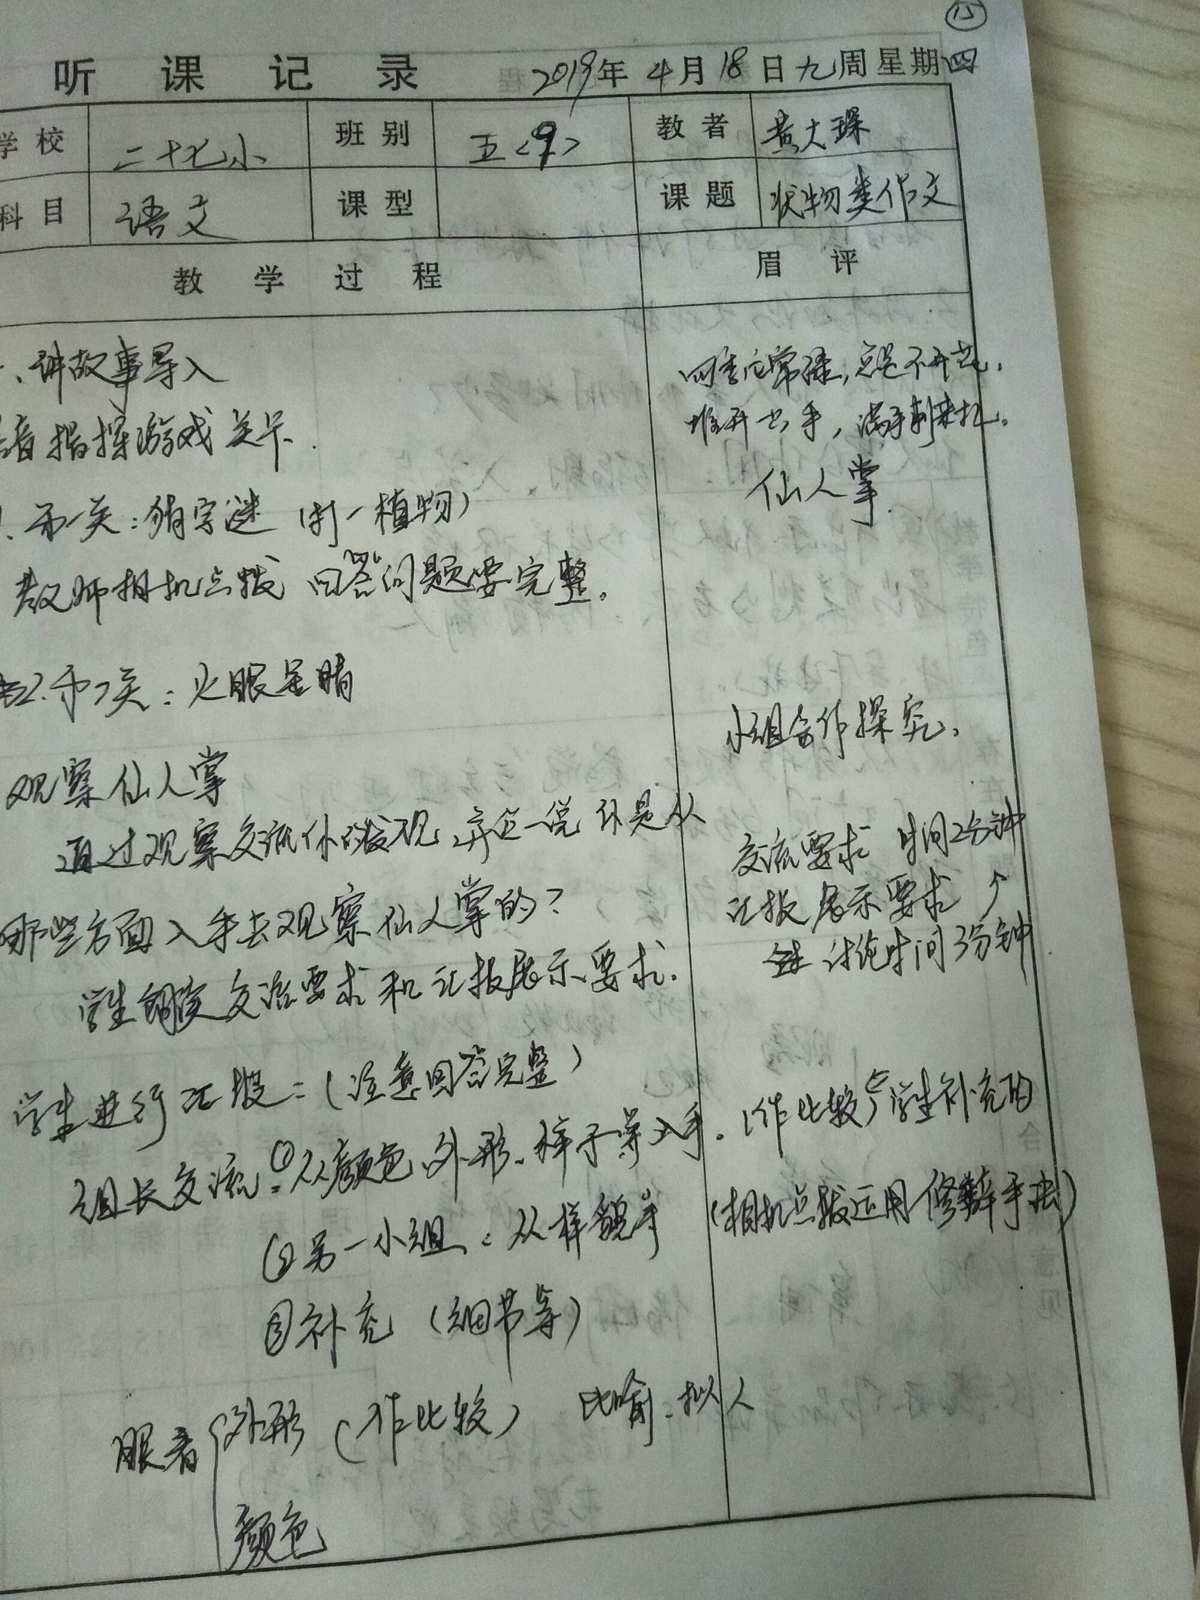 15
听课记录 2019年4月18日九周星期四
学校 二十七小 班别 五<9> 教者 黄大琛
科目 语文 课型 课题 状物类作文
教学过程 眉评
一、讲故事导入
游戏关卡.
1.第一关:猜字谜(打一植物)
教师相机点拨 回答问题要完整。
2.第二关:火眼金睛
观察仙人掌
通过观察交流你的发现,并说一说你是从
哪些方面入手去观察仙人掌的?
学生朗读交流要求和汇报展示要求.
学生进行汇报:(注意回答完整)
组长交流:①从颜色、外形、样子等入手.
②另一小组:从样貌
③补充(细节等)
眼看 外形(作比较) 比喻.拟人
颜色
四季常绿,总是不开花,
手,满手刺来扎。
仙人掌
小组合作探究.
交流要求 时间2分钟
汇报展示要求
讨论时间3分钟
(作比较)学生补充的
(相机点拨运用修辞手法)